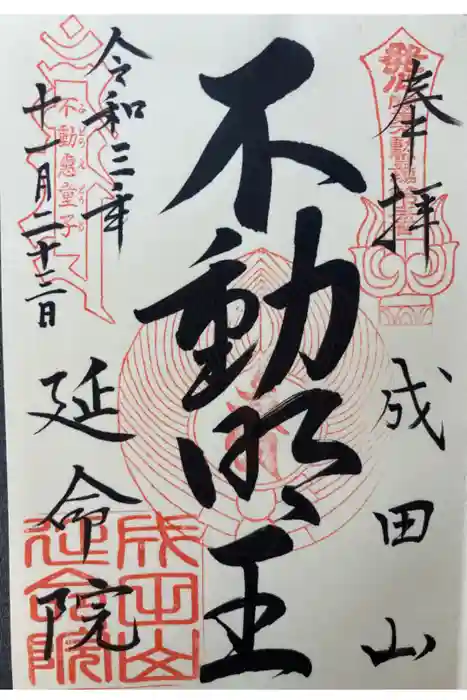 奉拝
成田山
不動明王
令和三年
十一月二十三日
不動慧童子
延命院
成田山
延命院